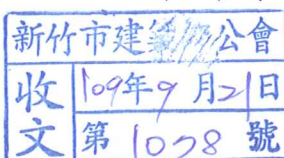 新竹市建築師公會
收文
109年9月21日
第1078號